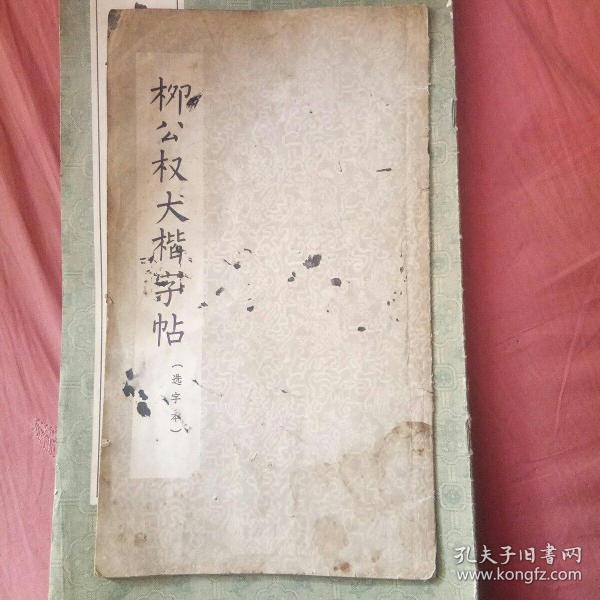 柳公权大楷字帖
（选字本）
孔夫子旧书网
www.kongfz.com